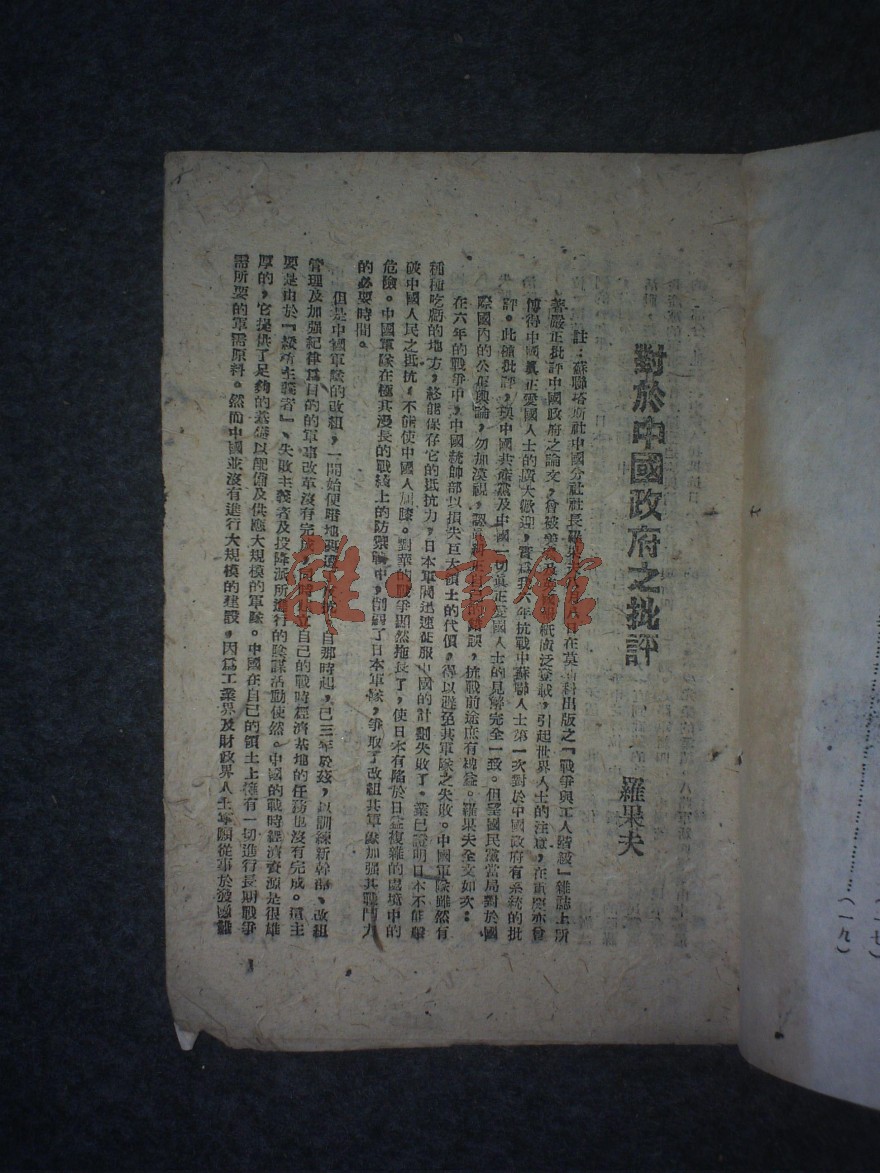 對於中國政府之批評
羅果夫
註：蘇聯塔斯社中國分社社長羅果夫在莫斯科出版之「戰爭與工人階級」雜誌上所
著嚴正批評中國政府之論文，曾被美紙廣泛登載，引起世界人士的注意，在重慶亦曾
博得中國眞正愛國人士的廣大歡迎，實爲我六年抗戰中蘇聯人士第一次對於中國政府有系統的批
評。此種批評，與中國共產黨及中國一切眞正愛國人士的見解完全一致。但望國民黨當局對於國
際國內的公正輿論，勿加漠視，認錯誤，抗戰前途庶有裨益。羅果夫全文如次：
在六年的戰爭中，中國統帥部以損失巨大領土的代價，得以避免其軍隊之失敗。中國軍隊雖然有
種種吃虧的地方，終能保存它的抵抗力，日本軍閥迅速征服中國的計劃失敗了。業已證明日本不能擊
破中國人民之抵抗，不能使中國人屈膝。對華的戰爭顯然拖長了，使日本有陷於日益複雜的處境中的
危險。中國軍隊在極其漫長的戰綫上的防禦戰中，削弱了日本軍隊，爭取了改組其軍隊加强其戰鬥力
的必要時間。
但是中國軍隊的改組，一開始便自那時起，已三年於茲，以訓練新幹部、改組
管理及加强紀律爲目的的軍事改革沒有完成，自己的戰時經濟基地的任務也沒有完成。這主
要是由於『綏靖主義者』、失敗主義者及投降派所進行的陰謀活動使然。中國的戰時經濟資源是很雄
厚的，它提供了足夠的基礎以配備及供應大規模的軍隊。中國在自己的領土上擁有一切進行長期戰爭
需所要的軍需原料。然而中國並沒有進行大規模的建設，因爲工業界及財政界人士寧願從事於發國難
1
（一七）
（一九）
雜·书館